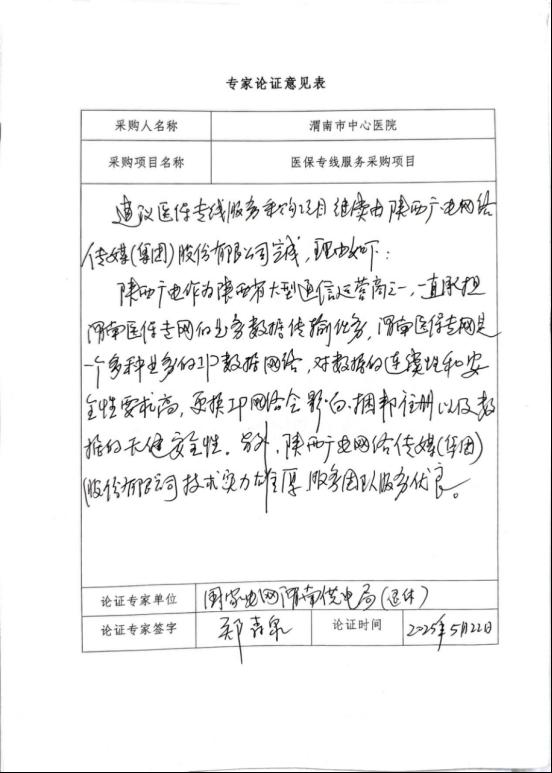 专家论证意见表
采购人名称 渭南市中心医院
采购项目名称 医保专线服务采购项目
建议医保专线服务采购项目继续由陕西广电网络
传媒(集团)股份有限公司完成,理由如下:
陕西广电作为陕西省大型通信运营商之一,一直承担
渭南医保专网的业务数据传输任务,渭南医保专网是
一个多种业务的IP数据网络,对数据的连续性和安
全性要求高,更换IP网络会影响捆绑注册以及数
据的 安全性。另外,陕西广电网络传媒(集团)
股份有限公司技术实力雄厚,服务团队服务优良。
论证专家单位 国家电网渭南供电局(退休)
论证专家签字 郑 论证时间 2025年5月22日